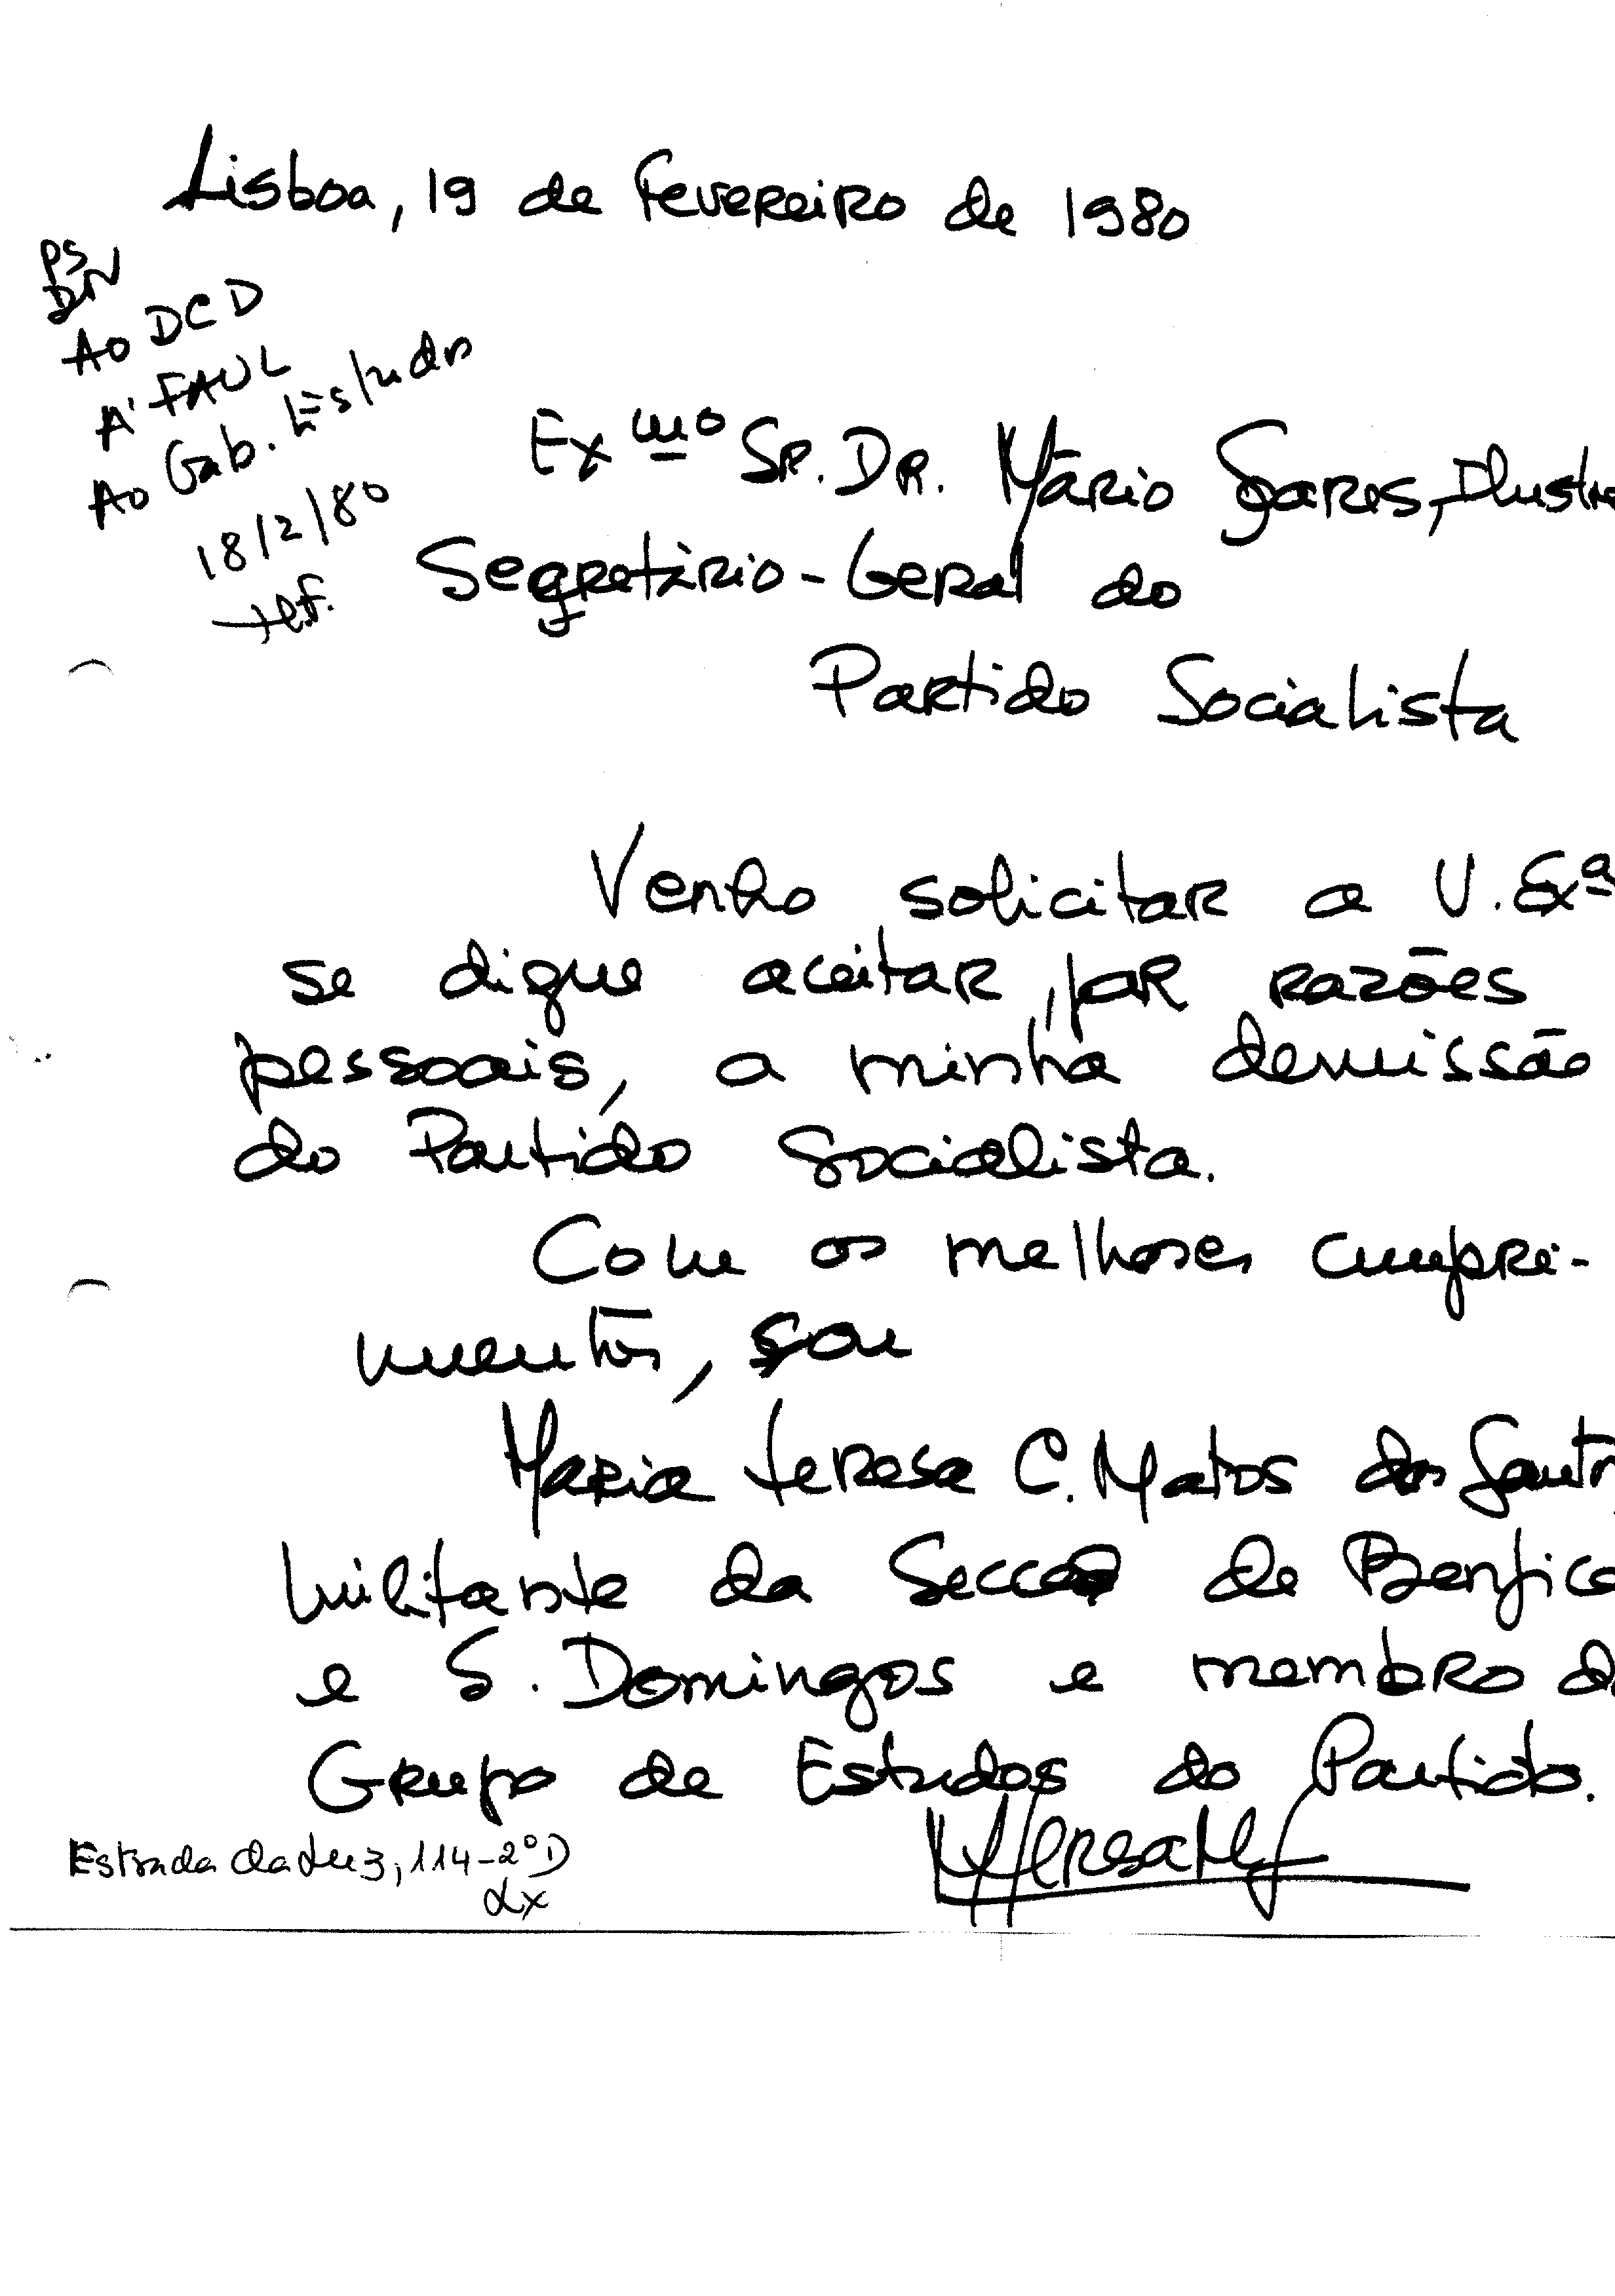 Lisboa, 19 de Fevereiro de 1980
PS
DN
Ao DCD
À FAUL
Ao Gab. Estudos
18/2/80
Ex mo Sr. Dr. Mário Soares, Ilustre
Secretário-Geral do
Partido Socialista
Venho solicitar a V. Exª
se digne aceitar, por razões
pessoais, a minha demissão
do Partido Socialista.
Com os melhores cumpri-
mentos, sou
Maria Teresa C. Matos dos Santos,
militante da Secção de Benfica
e S. Domingos e membro do
Grupo de Estudos do Partido.
Estrada da Luz, 114-2º D
Lx